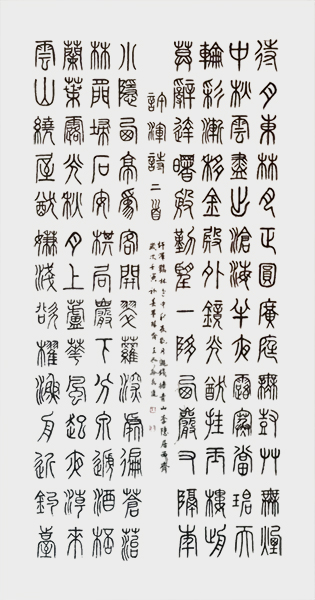 待月東林月正圓廣庭無樹艸無煙
中秋雲盡出滄海半夜露寒當碧天
輪彩漸移金殿外鏡光猶挂玉樓前
莫辭達曙殷勤望一墮西巖又隔年
許渾詩二首
小隱西亭為客開翠蘿深處徧蒼苔
林間埽石安棋局巖下分泉遞酒桮
蘭葉露光秋月上蘆華風起夜潮來
雲山繞屋猶嫌淺欲櫂漁舟近釣臺